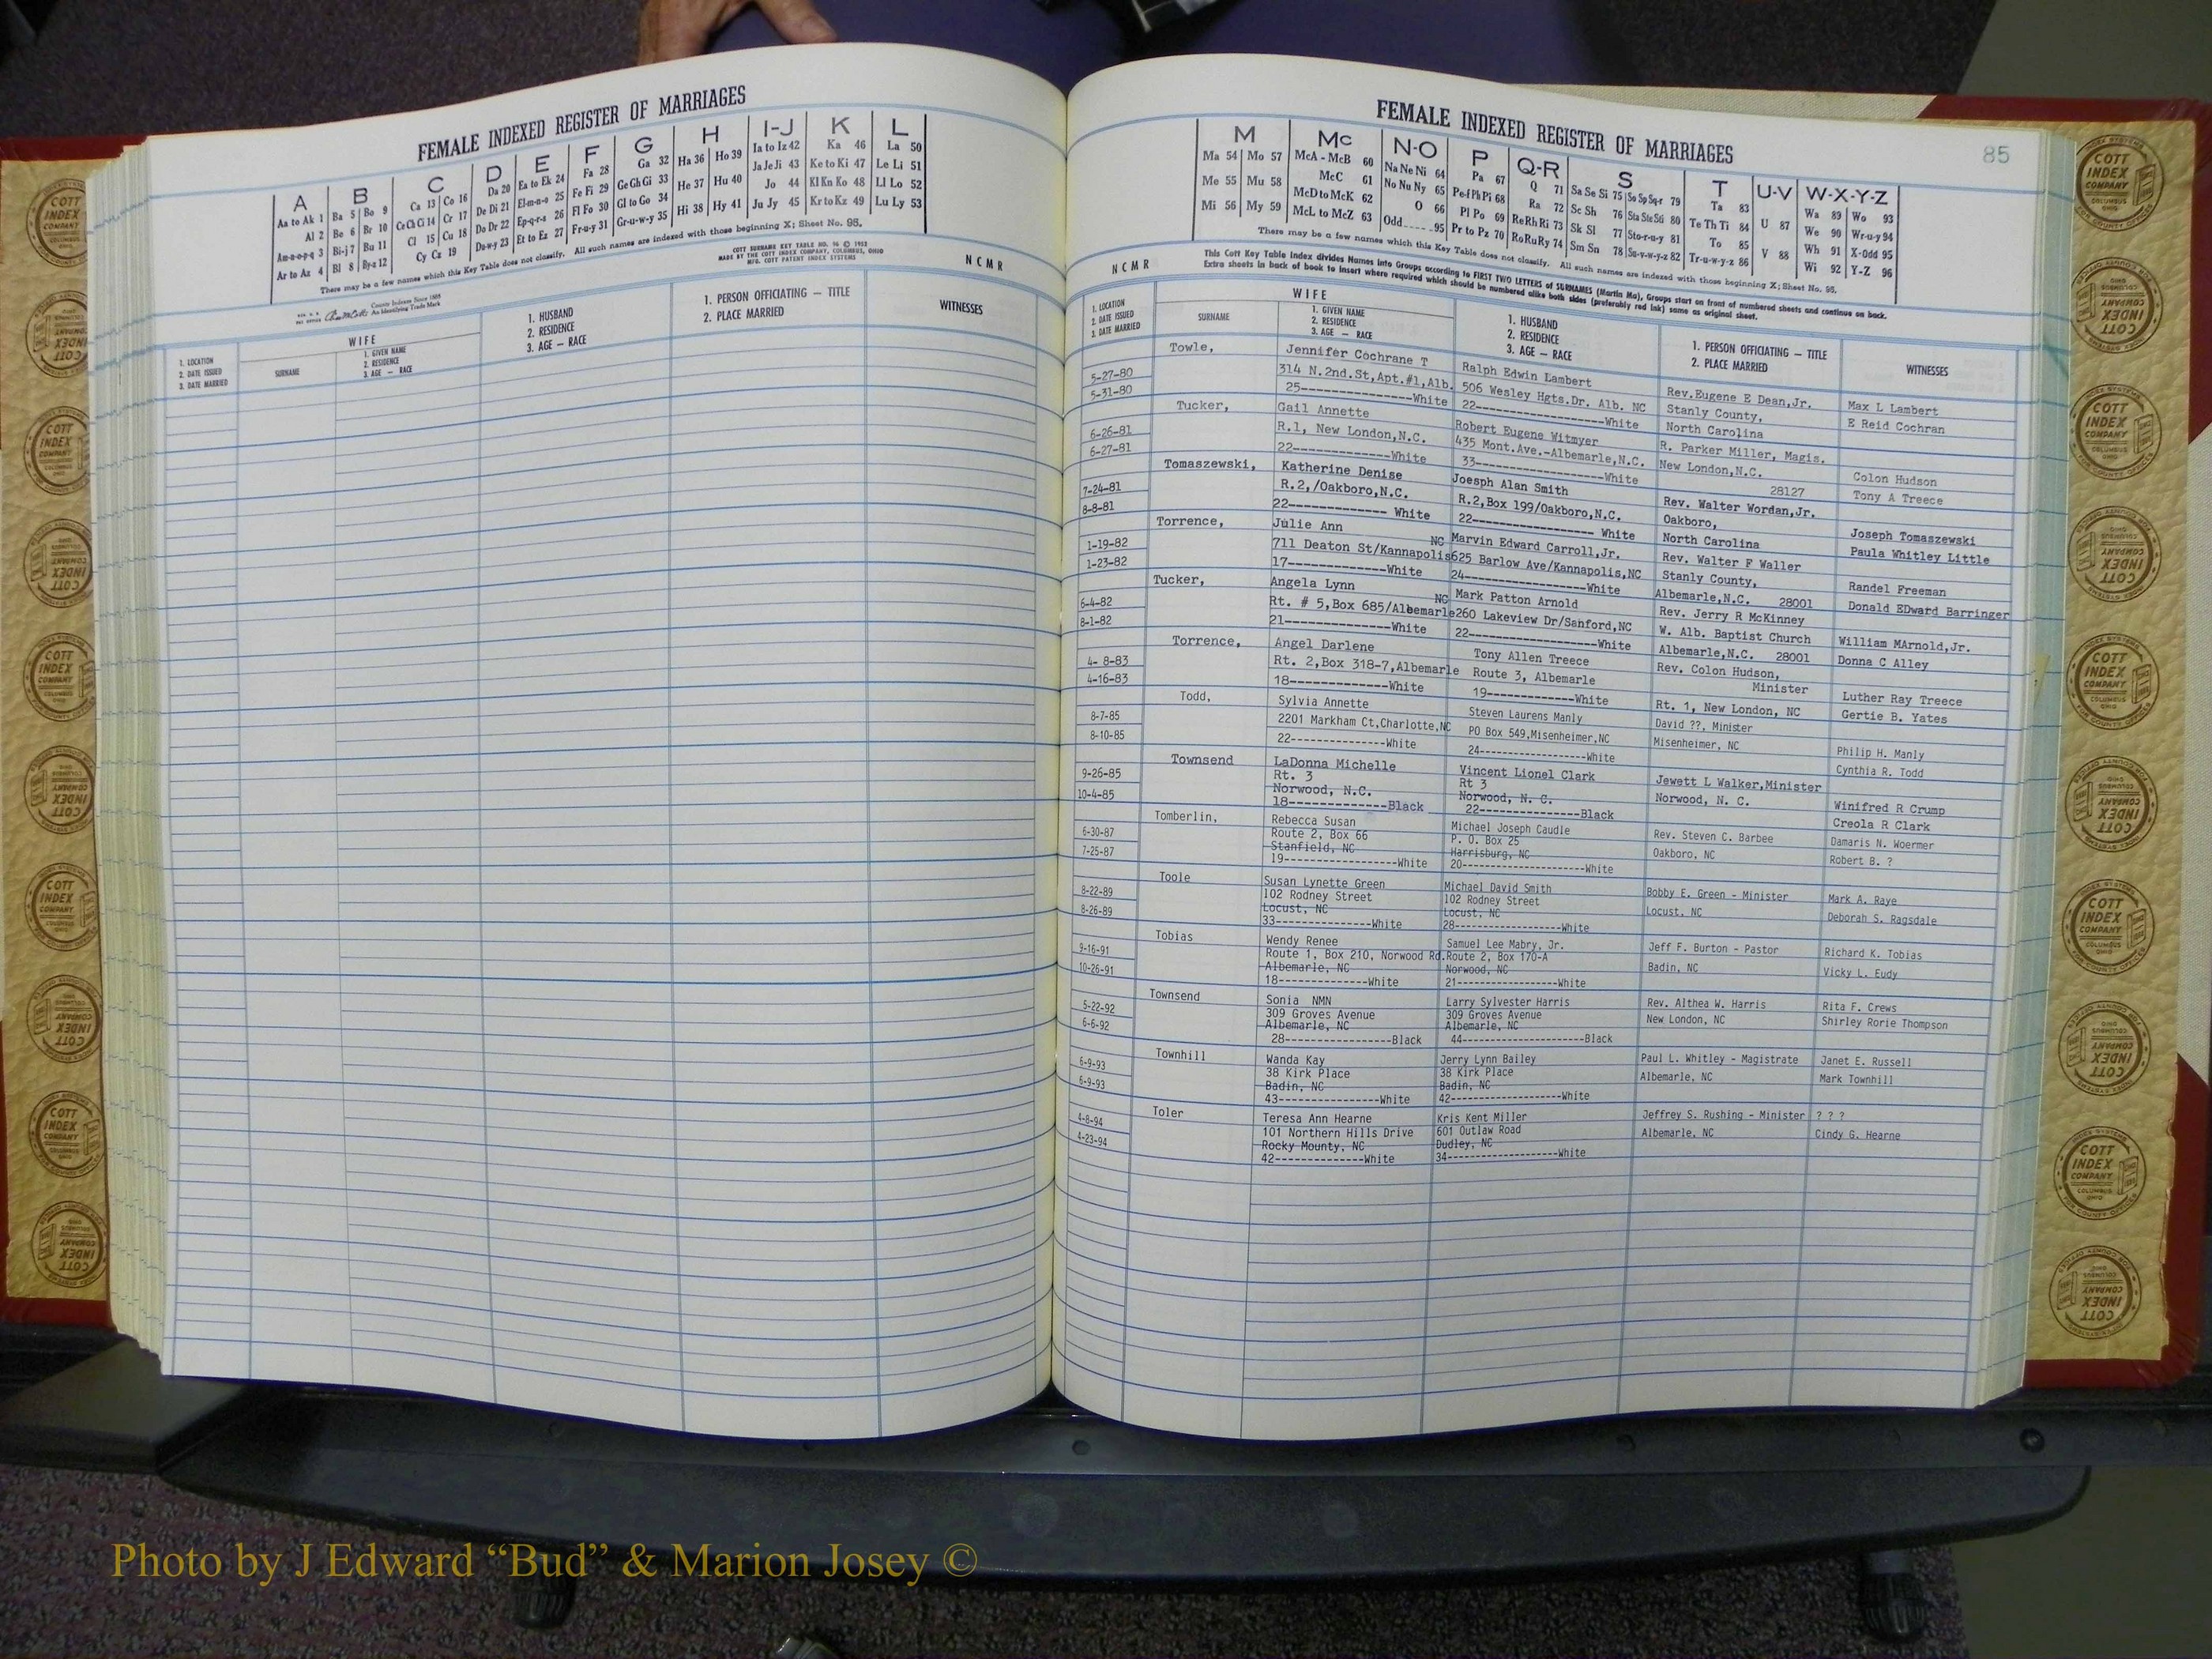 FEMALE INDEXED REGISTER OF MARRIAGES
A B C D E F G H I-J K L
Aa to Ak 1 Ba 5 Bo 9 Ca 13 Co 16 Da 20 Ea to Ek 24 Fa 28 Ga 32 Ha 36 Ho 39 Ia to Iz 42 Ka 46 La 50
Al 2 Be 6 Br 10 Ce Ch Ci 14 Cr 17 De Di 21 El-m-n-o 25 Fe Fi 29 Ge Gh Gi 33 He 37 Hu 40 Ja Je Ji 43 Ke to Ki 47 Le Li 51
Am-n-o-p-q 3 Bi-j 7 Bu 11 Cl 15 Cu 18 Do Dr 22 Ep-q-r-s 26 Fl Fo 30 Gl to Go 34 Hi 38 Hy 41 Jo 44 Kl Kn Ko 48 Ll Lo 52
Ar to Az 4 Bl 8 By-z 12 Cy Cz 19 Du-w-y 23 Et to Ez 27 Fr-u-y 31 Gr-u-w-y 35 Ju Jy 45 Kr to Kz 49 Lu Ly 53
There may be a few names which this Key Table does not classify. All such names are indexed with those beginning X; Sheet No. 95.
COTT SURNAME KEY TABLE NO. 96 © 1952
MADE BY THE COTT INDEX COMPANY, COLUMBUS, OHIO
MFG. COTT PATENT INDEX SYSTEMS
N C M R
County Indexes Since 1888
An Identifying Trade Mark
WIFE
1. LOCATION
2. DATE ISSUED
3. DATE MARRIED
SURNAME
1. GIVEN NAME
2. RESIDENCE
3. AGE — RACE
1. HUSBAND
2. RESIDENCE
3. AGE — RACE
1. PERSON OFFICIATING — TITLE
2. PLACE MARRIED
WITNESSES
FEMALE INDEXED REGISTER OF MARRIAGES
85
M Mc N-O P Q-R S T U-V W-X-Y-Z
Ma 54 Mo 57 McA - McB 60 Na Ne Ni 64 Pa 67 Q 71 Sa Se Si 75 So Sp Sq-r 79 Ta 83 U 87 Wa 89 Wo 93
Me 55 Mu 58 McC 61 No Nu Ny 65 Pe-f Ph Pi 68 Ra 72 Sc Sh 76 Sta Ste Sti 80 Te Th Ti 84 V 88 We 90 Wr-u-y 94
Mi 56 My 59 McD to McK 62 O 66 Pl Po 69 Re Rh Ri 73 Sk Sl 77 Sto-r-u-y 81 To 85 Wh 91 X-Odd 95
McL to McZ 63 Odd 95 Pr to Pz 70 Ro Ru Ry 74 Sm Sn 78 Su-v-w-y-z 82 Tr-u-w-y-z 86 Wi 92 Y-Z 96
There may be a few names which this Key Table does not classify. All such names are indexed with those beginning X; Sheet No. 95.
N C M R
This Cott Key Table Index divides Names into Groups according to FIRST TWO LETTERS of SURNAMES (Martin Ma), Groups start on front of numbered sheets and continue on back.
Extra sheets in back of book to insert where required which should be numbered alike both sides (preferably red ink) same as original sheet.
WIFE
1. LOCATION
2. DATE ISSUED
3. DATE MARRIED
SURNAME
1. GIVEN NAME
2. RESIDENCE
3. AGE — RACE
1. HUSBAND
2. RESIDENCE
3. AGE — RACE
1. PERSON OFFICIATING — TITLE
2. PLACE MARRIED
WITNESSES
Towle, Jennifer Cochrane T Ralph Edwin Lambert Rev.Eugene E Dean,Jr. Max L Lambert
5-27-80 314 N.2nd.St,Apt.#1,Alb. 506 Wesley Hgts.Dr. Alb. NC Stanly County, E Reid Cochran
5-31-80 25-------------White 22-------------White North Carolina
Tucker, Gail Annette Robert Eugene Witmyer R. Parker Miller, Magis. Colon Hudson
6-26-81 R.1, New London,N.C. 435 Mont.Ave.-Albemarle,N.C. New London,N.C. Tony A Treece
6-27-81 22-------------White 33-------------White 28127
Tomaszewski, Katherine Denise Joesph Alan Smith Rev. Walter Wordan,Jr. Joseph Tomaszewski
7-24-81 R.2,/Oakboro,N.C. R.2,Box 199/Oakboro,N.C. Oakboro, Paula Whitley Little
8-8-81 22------------- White 22------------- White North Carolina
Torrence, Julie Ann Marvin Edward Carroll,Jr. Rev. Walter F Waller Randel Freeman
1-19-82 711 Deaton St/Kannapolis NC 625 Barlow Ave/Kannapolis,NC Stanly County, Donald EDward Barringer
1-23-82 17-------------White 24-------------White Albemarle,N.C. 28001
Tucker, Angela Lynn Mark Patton Arnold Rev. Jerry R McKinney William MArnold,Jr.
6-4-82 Rt. # 5,Box 685/Albemarle NC 260 Lakeview Dr/Sanford,NC W. Alb. Baptist Church Donna C Alley
8-1-82 21-------------White 22-------------White Albemarle,N.C. 28001
Torrence, Angel Darlene Tony Allen Treece Rev. Colon Hudson, Luther Ray Treece
4- 8-83 Rt. 2,Box 318-7,Albemarle Route 3, Albemarle Minister Gertie B. Yates
4-16-83 18-------------White 19-------------White Rt. 1, New London, NC
Todd, Sylvia Annette Steven Laurens Manly David ??, Minister Philip H. Manly
8-7-85 2201 Markham Ct,Charlotte,NC PO Box 549,Misenheimer,NC Misenheimer, NC Cynthia R. Todd
8-10-85 22-------------White 24-------------White
Townsend LaDonna Michelle Vincent Lionel Clark Jewett L Walker,Minister Winifred R Crump
9-26-85 Rt. 3 Rt 3 Norwood, N. C. Creola R Clark
10-4-85 Norwood, N.C. Norwood, N. C.
18-------------Black 22-------------Black
Tomberlin, Rebecca Susan Michael Joseph Caudle Rev. Steven C. Barbee Damaris N. Woermer
6-30-87 Route 2, Box 66 P. O. Box 25 Oakboro, NC Robert B. ?
7-25-87 Stanfield, NC Harrisburg, NC
19-------------White 20-------------White
Toole Susan Lynette Green Michael David Smith Bobby E. Green - Minister Mark A. Raye
8-22-89 102 Rodney Street 102 Rodney Street Locust, NC Deborah S. Ragsdale
8-26-89 Locust, NC Locust, NC
33-------------White 28-------------White
Tobias Wendy Renee Samuel Lee Mabry, Jr. Jeff F. Burton - Pastor Richard K. Tobias
9-16-91 Route 1, Box 210, Norwood Rd. Route 2, Box 170-A Badin, NC Vicky L. Eudy
10-26-91 Albemarle, NC Norwood, NC
18-------------White 21-------------White
Townsend Sonia NMN Larry Sylvester Harris Rev. Althea W. Harris Rita F. Crews
5-22-92 309 Groves Avenue 309 Groves Avenue New London, NC Shirley Rorie Thompson
6-6-92 Albemarle, NC Albemarle, NC
28-------------Black 44-------------Black
Townhill Wanda Kay Jerry Lynn Bailey Paul L. Whitley - Magistrate Janet E. Russell
6-9-93 38 Kirk Place 38 Kirk Place Albemarle, NC Mark Townhill
6-9-93 Badin, NC Badin, NC
43-------------White 42-------------White
Toler Teresa Ann Hearne Kris Kent Miller Jeffrey S. Rushing - Minister ? ? ?
4-8-94 101 Northern Hills Drive 601 Outlaw Road Albemarle, NC Cindy G. Hearne
4-23-94 Rocky Mounty, NC Dudley, NC
42-------------White 34-------------White
COTT INDEX COMPANY COLUMBUS OHIO
Photo by J Edward “Bud” & Marion Josey ©